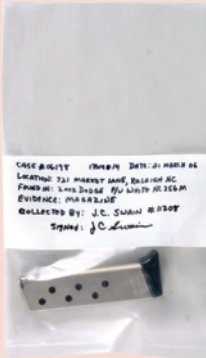 CASE # 06198 ITEM#14 DATE: 21 MARCH 06
LOCATION: 721 MARKET LANE, RALEIGH NC
FOUND IN: 2002 DODGE P/U WHITE NC 256M
EVIDENCE: MAGAZINE
COLLECTED BY: J.C. SWAIN # 11208
SIGNED: J C Swain